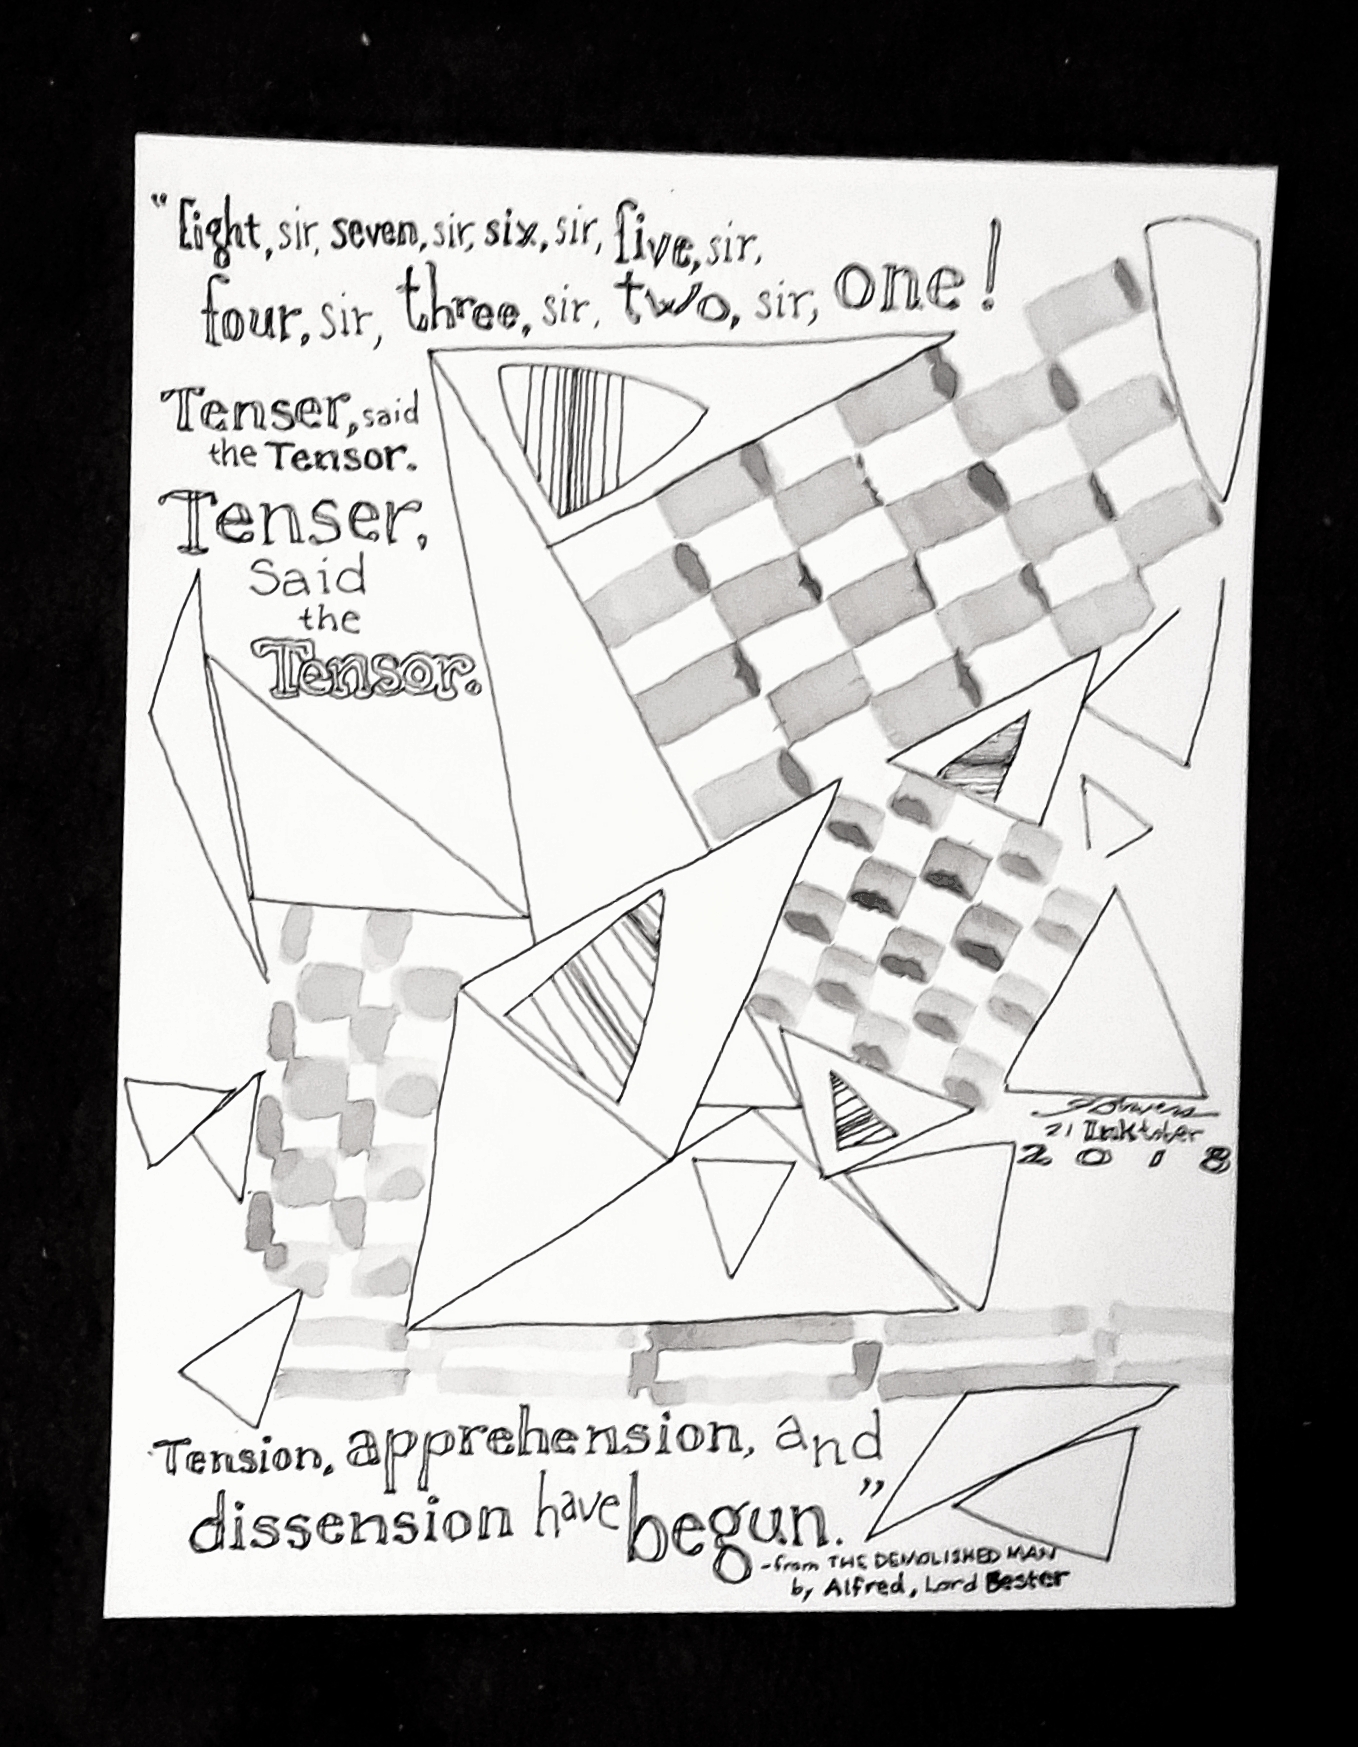 "Eight, sir, seven, sir, six, sir, five, sir,
four, sir, three, sir, two, sir, one!
Tenser, said
the Tensor.
Tenser,
Said
the
Tensor.
21 Inktober
2018
Tension, apprehension, and
dissension have begun."
-from THE DEMOLISHED MAN
by Alfred, Lord Bester